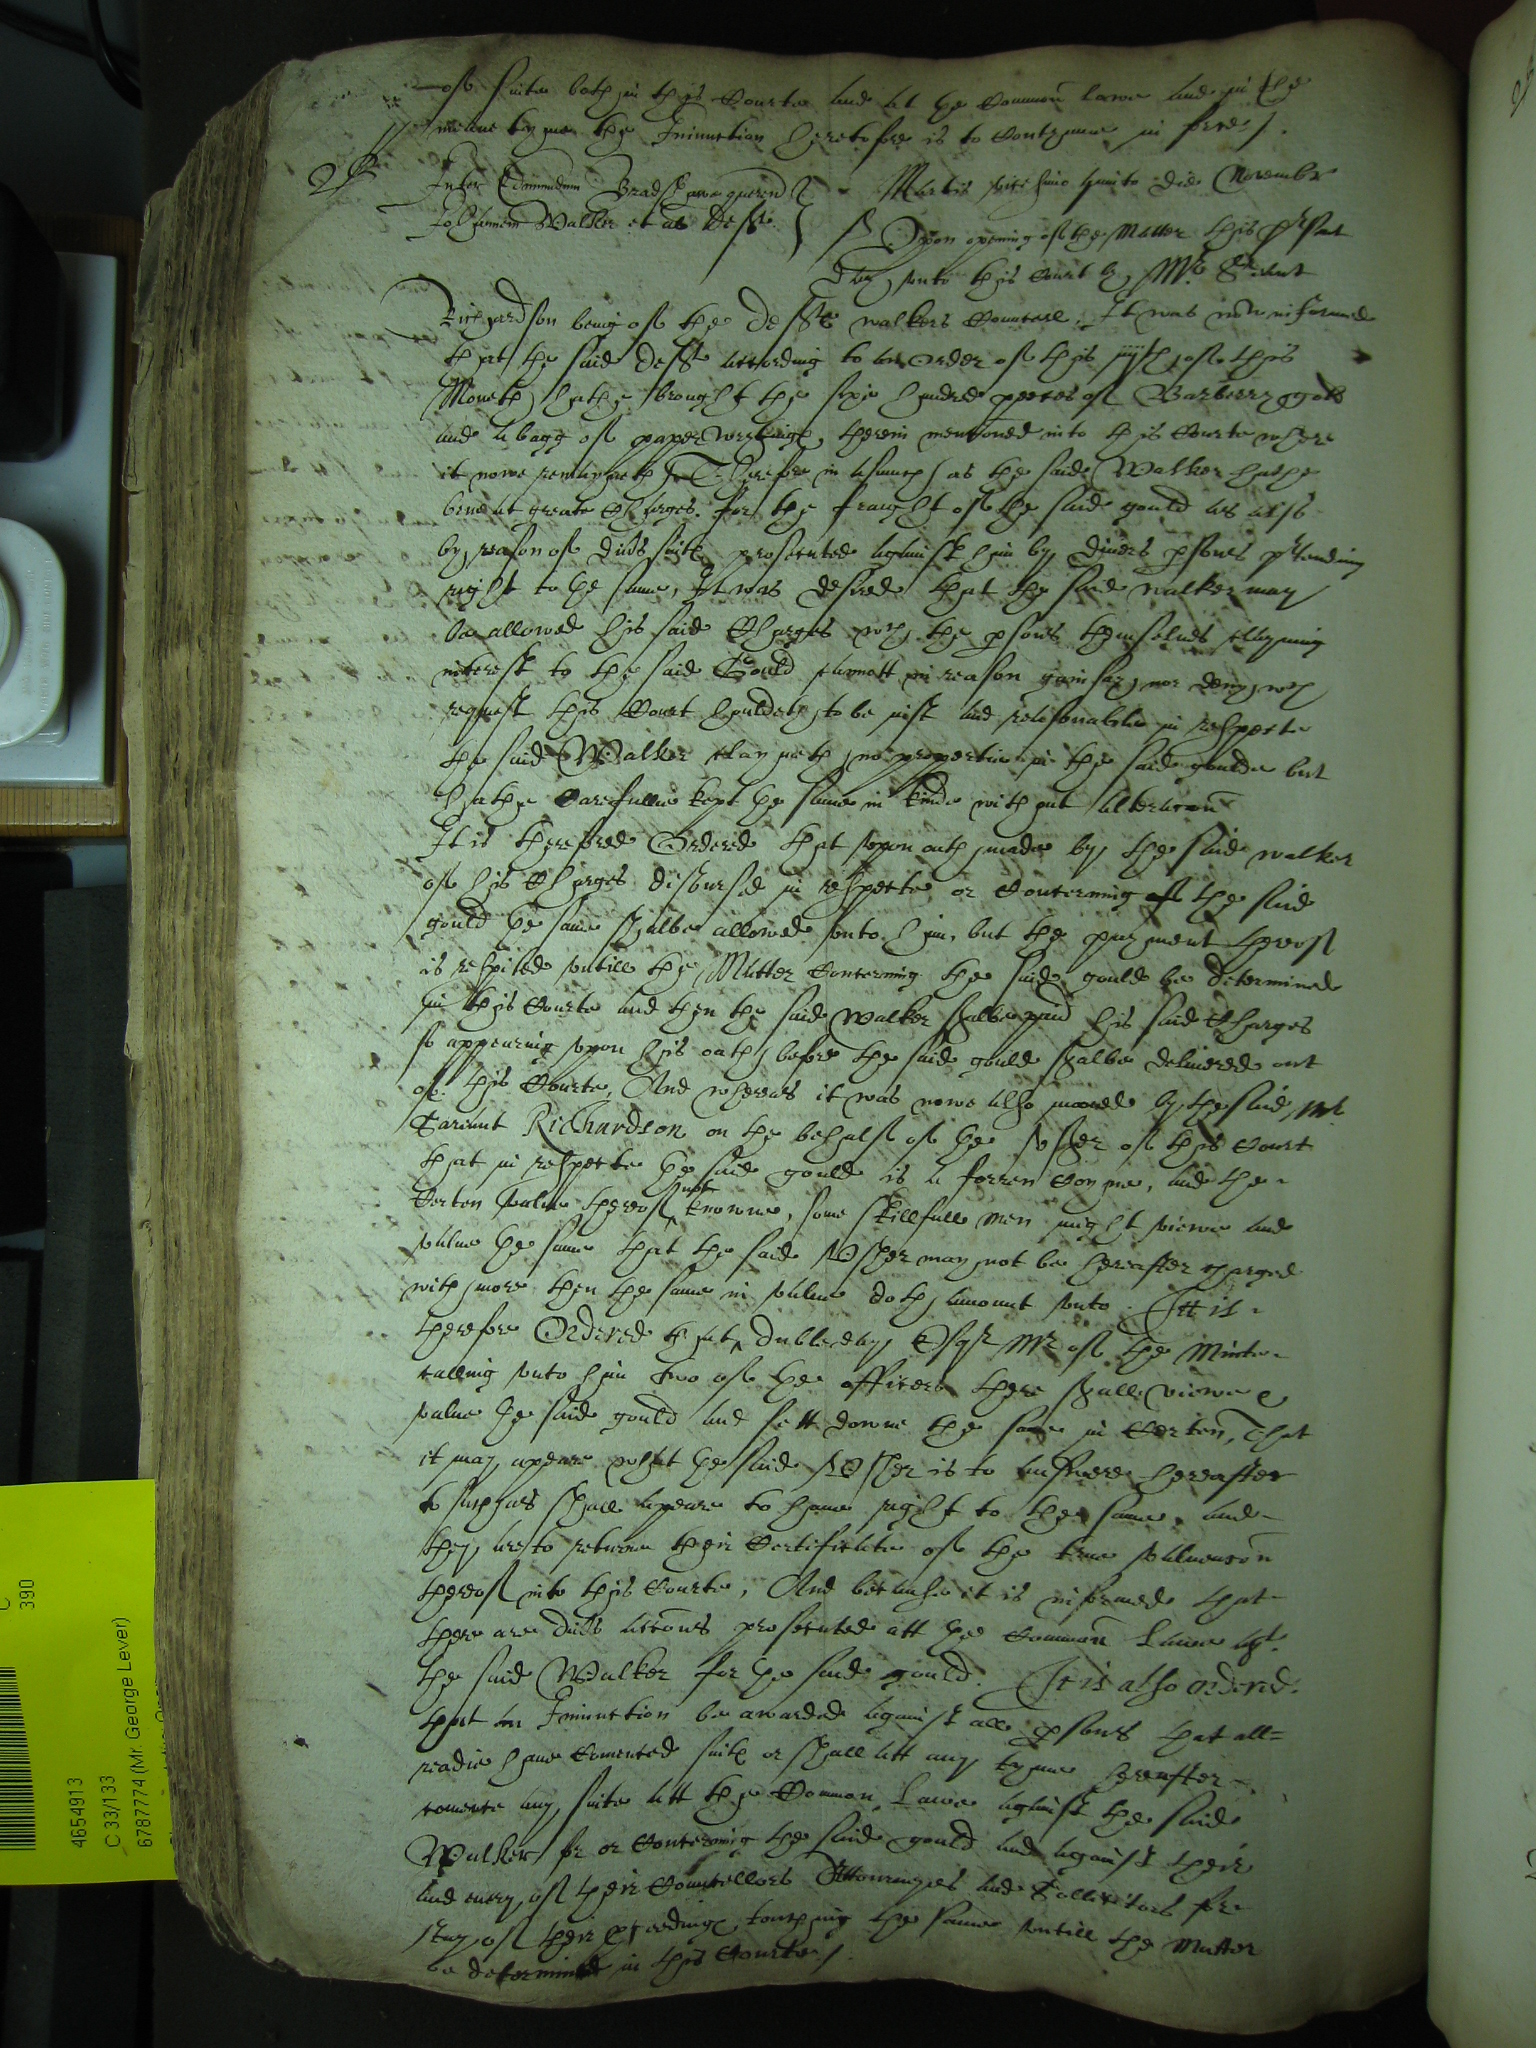 of suite both in this Courte and at the Common lawe and in the
meane tyme the Iniunction heretofore is to Contynue in force /.
Inter Edmundum Bradshawe querent
Johannem Walker et al Defts.
Martis vicesimo quinto die Novembr
Upon opening of the Matter this p'sent
day unto this Court by Mr. Seriant
Richardson being of the Defte walkers Councell, It was informed
that the said Defte according to an Order of this iiijth of this
Moneth hathe brought the sixe hundred peeces of Barberry gold
and a bagg of paper wrytings, therein mentioned into this Courte where
it nowe remayneth / Therefore in asmuch as the said Walker hathe
bine at greate Charges for the fraught of the said gould as also
by reason of divs suits prosecuted against him by divers psones p'tending
right to the same, It was desired that the said walker may
be allowed his said Charges wch the psons themselves clayming
interest to the said Gould cannott in reason gainsay nor deny, wch
request this Court houldeth to be iust and reasonable in respecte
the said Walker claymeth no propertie in the said goulde but
hathe Carefullie kept the same in kinde without alteracon
It is therefore Ordered that upon oath made by the said walker
of his Charges disbursed in respecte or Concerning of the said
gould the same shalbe allowed unto him, but the payment thereof
is respited untill the Matter Concerning the said gould be determined
in this Courte and then the said Walker shalbe paid his said Charges
so appearing upon his oath before the said gould shalbe delivered out
of this Courte, And whereas it was nowe also moved by the said Mr
Sariant Richardson on the behalf of the Usher of this Court
that in respecte the said gould is a forren Coyne, and the
Certen value thereof not knowne, some skillfull men might viewe and
value the same that the said Usher may not be hereafter charged
with more then the same in value doth amount unto. Itt is
therefore Ordered that Dubleday Esqr Mr of the Minte
calling unto him two of the officers there shall viewe &
value the said gould and sett downe the same in Certen, That
it may appeare what the said Usher is to answere hereafter
to such as shall appeare to have right to the same, and
they are to returne their Certificate of the true valuacon
thereof into this Courte, And because it is informed that
there are divs accons prosecuted att the Common Lawe agt
the said Walker for the said gould. It is also ordered
that an Iniunction be awarded against all psons that all=
readie have Comenced suite or shall att any tyme hereafter
comence any suite att the Common Lawe against the said
Walker for or Concerning the said gould and against their
and every of their Councellors Attourneyes and Sollicitors for
stay of their p'ceedings touching the same untill the Matter
be determined in this Courte /.
C
390
4654913
C 33/133
6787774 (Mr. George Lever)